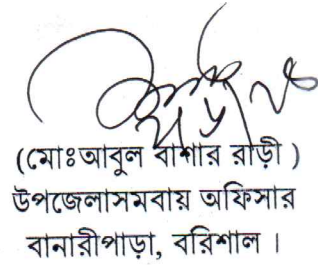 (মোঃআবুল বাশার রাড়ী )
উপজেলাসমবায় অফিসার
বানারীপাড়া, বরিশাল ।